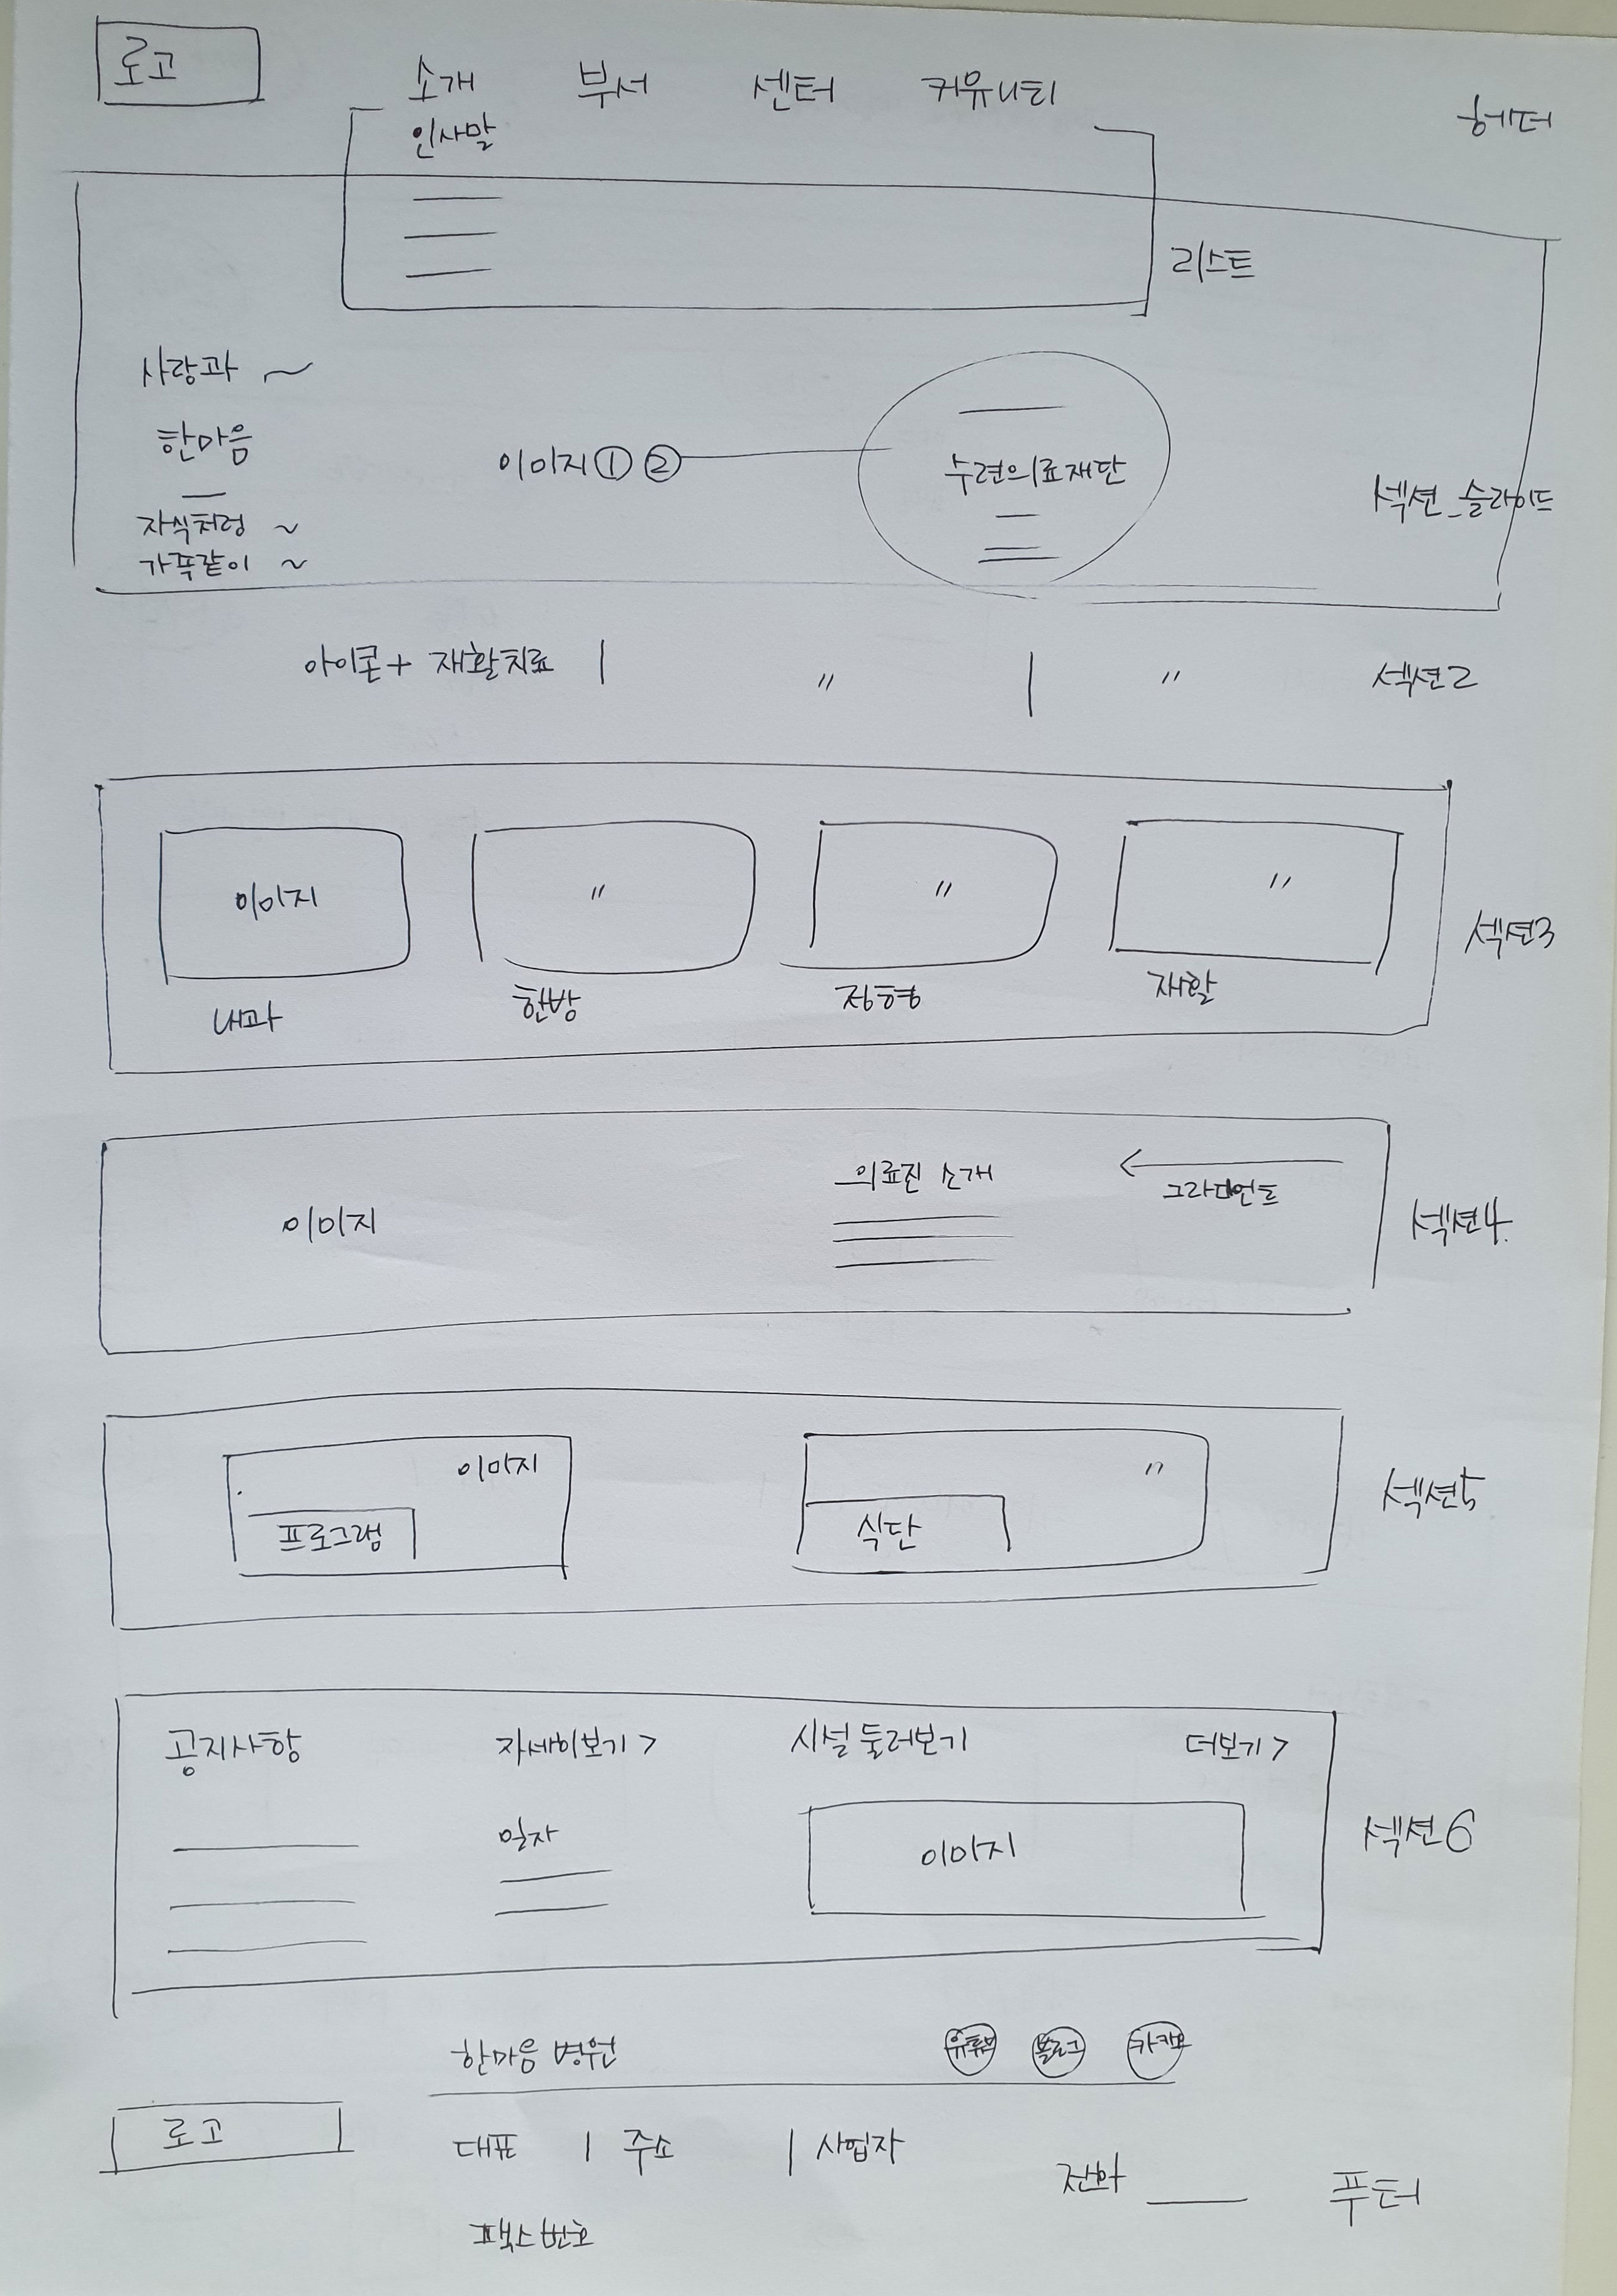 로고
소개 부서 센터 커뮤니티
헤더
인사말
리스트
사랑과 ~
한마음
자식처럼 ~
가족같이 ~
이미지 ① ②
수련의료재단
섹션_슬라이드
아이콘 + 재활치료 | 〃 | 〃
섹션2
이미지 〃 〃 〃
내과 한방 정형 재활
섹션3
이미지
의료진 소개
←
그라디언트
섹션4.
이미지 〃
프로그램 식단
섹션5
공지사항 자세히보기 > 시설 둘러보기 더보기 >
일자
이미지
섹션6
한마음 병원 유튜브 블로그 카카오
로고
대표 | 주소 | 사업자
전화
팩스번호
푸터